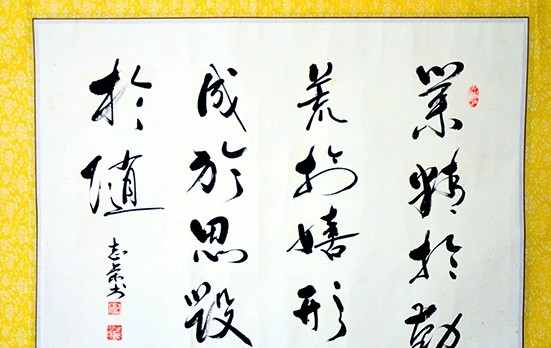 業精於勤
荒於嬉形
成於思毀
於隨
志 书